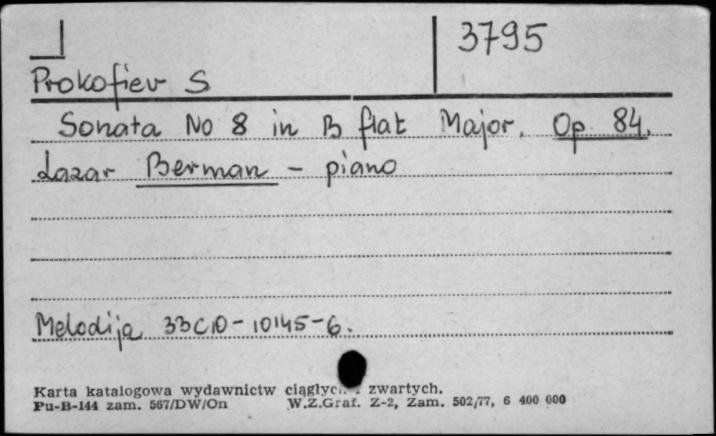 3795
Prokofiev S
Sonata No 8 in B flat Major. Op. 84.
Lazar Berman - piano
Melodija 33C10-10145-6.
Karta katalogowa wydawnictw zwartych.
Pu-B-144 zam. 567/DW/On W.Z.Graf. Z-2, Zam. 502/77, 6 400 000